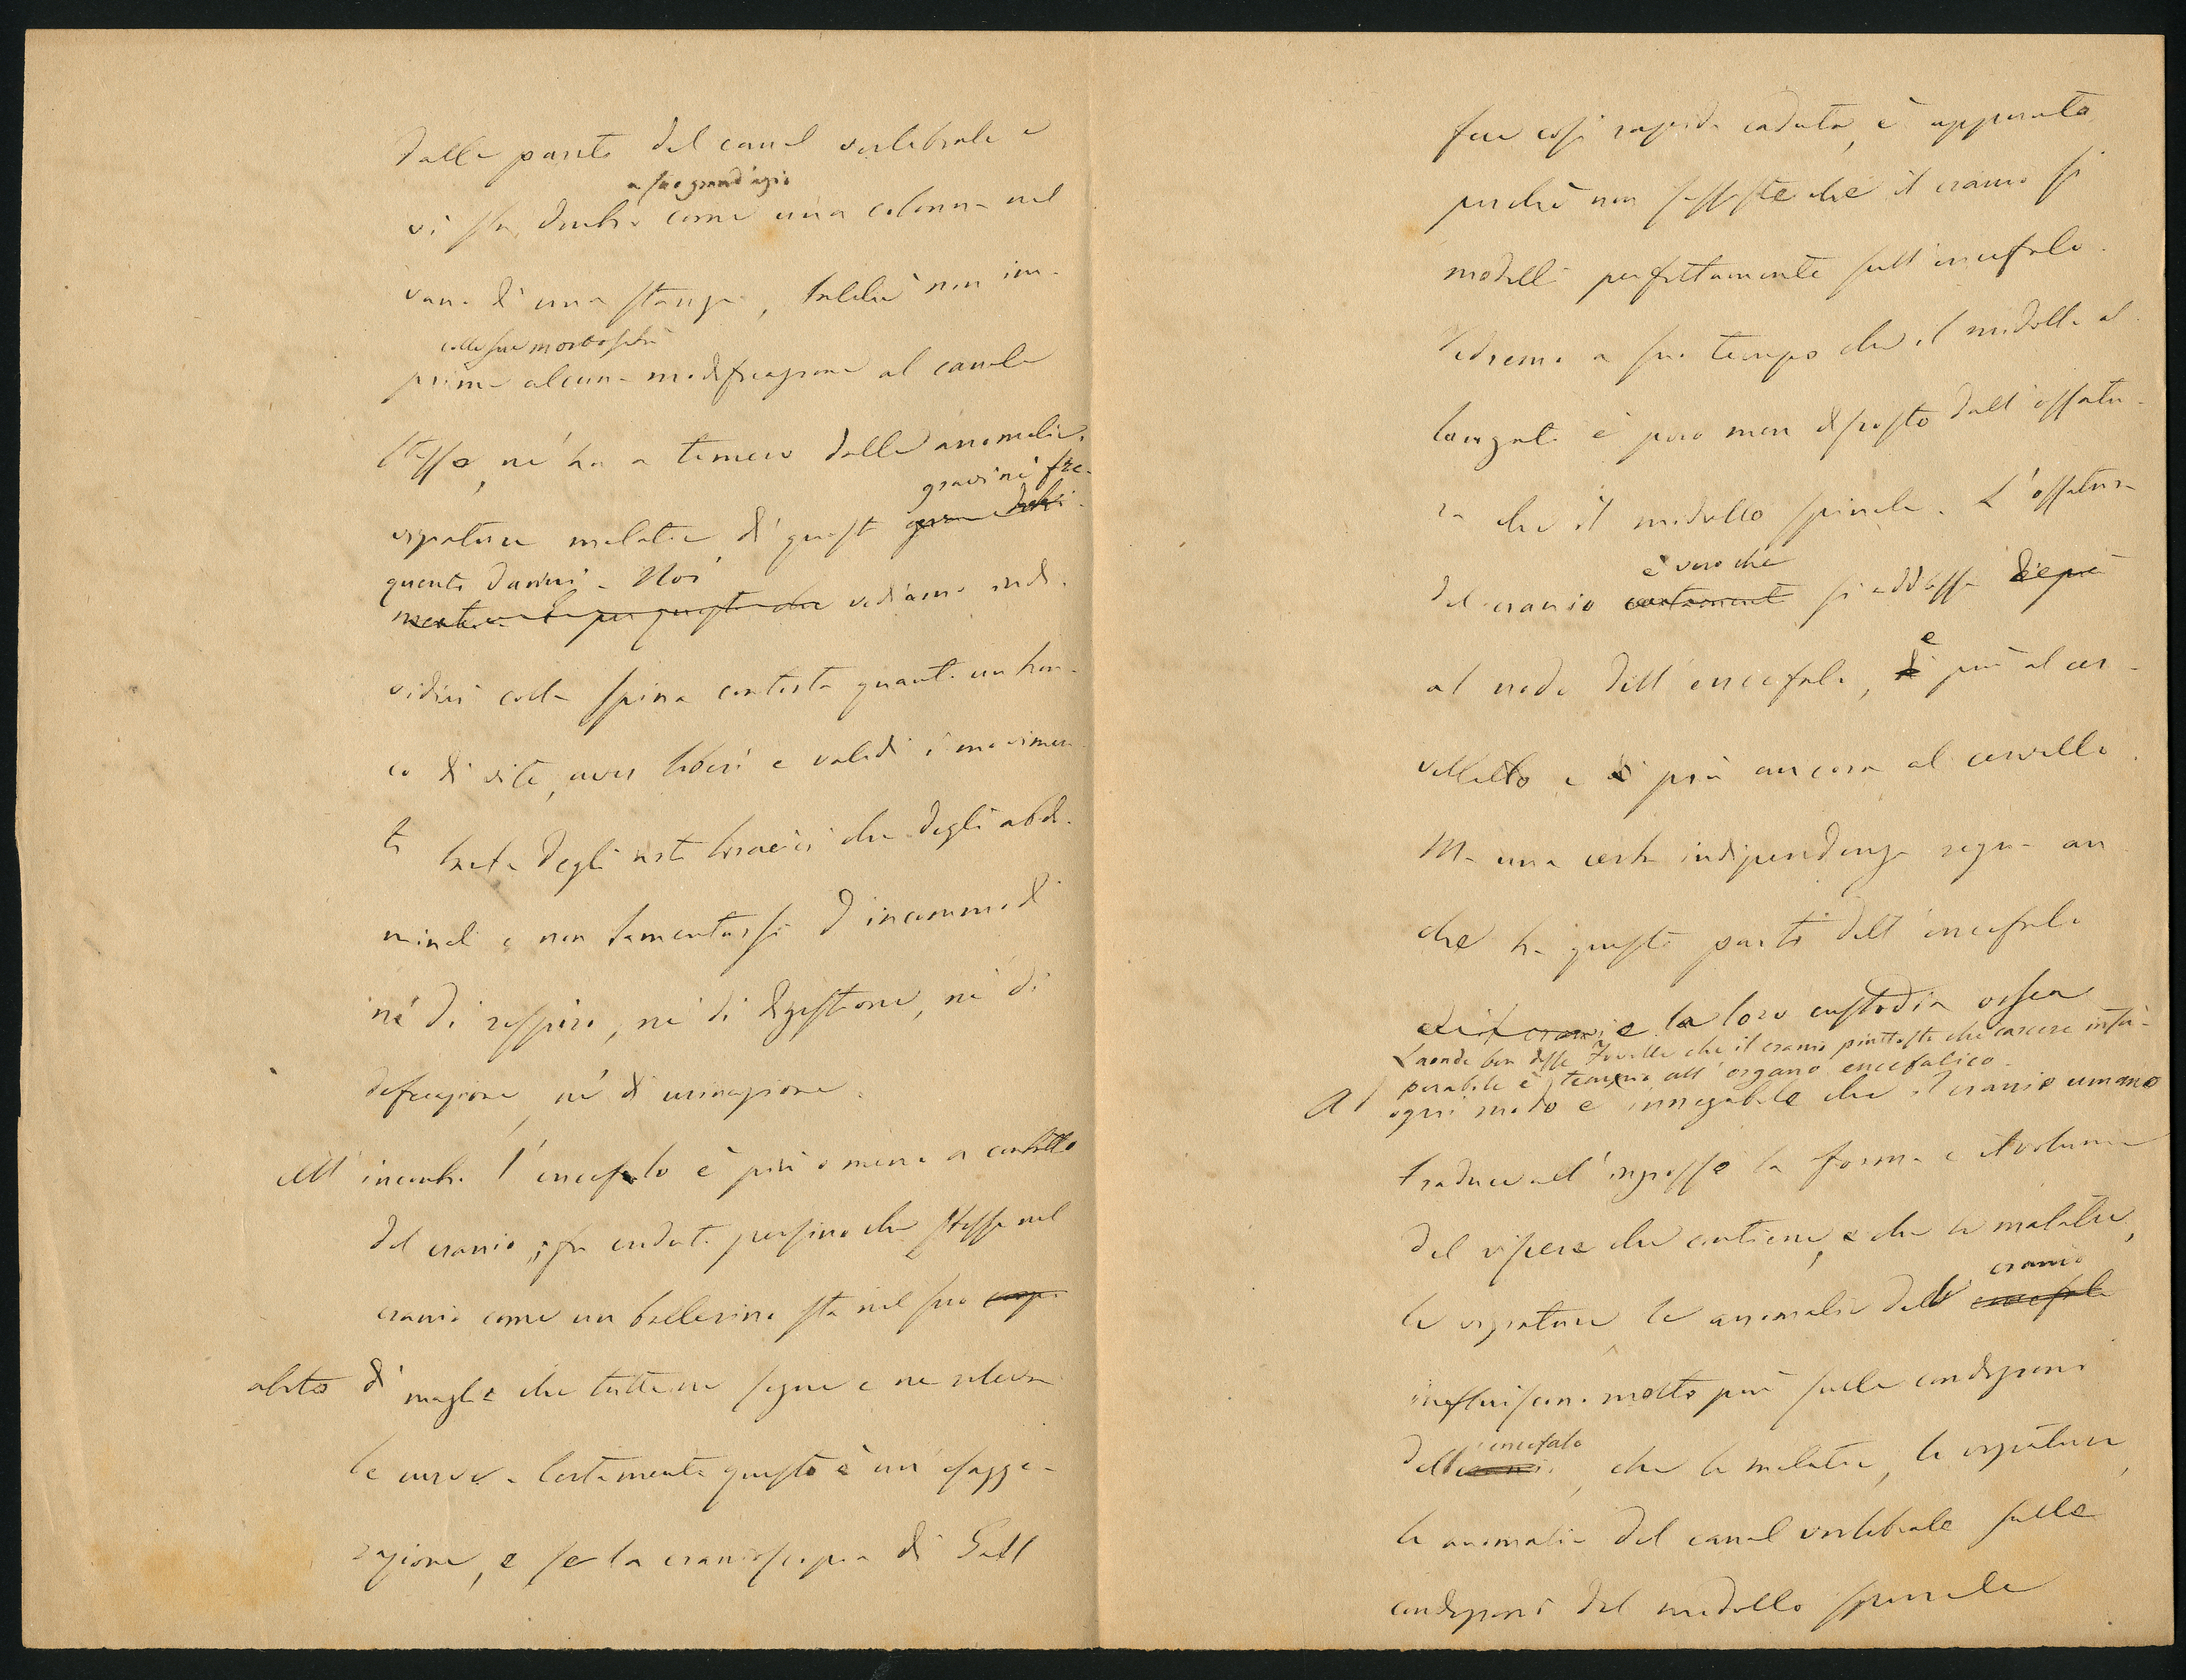 dalle pareti del canal vertebrale e
a suo grand'agio
vi sta dentro come una colonna nel
vano di una stanza, talchè non im-
colle sue morbosità
prime alcuna modificazione al canale
stesso, nè ha a temere dalle anomalie,
gravi nè fre-
viziature malatie di questo
quenti danni. Noi
mente. E per questo che vediamo indi-
vidui colla spina contorta quanto un ...
co di vite, aver liberi e validi i movimen
ti tanto degli arti toracici che degli abdo-
minali e non lamentarsi d'incommodi
nè di respiro, nè di digestione, nè di
defecazione, nè di urinazione.
All'incontro l'encefalo è più o meno a contatto
del cranio; fu creduto persino che stesse nel
cranio come un ballerino sta nel suo
abito di maglia che tutte ne segue e ne rileva
le curve. Certamente questo è un'esagge-
razione, e se la cranioscopia di Gall
fece così rapida caduta, è appunto
perchè non sussiste che il cranio si
modelli perfettamente sull'encefalo.
Vedremo a suo tempo che il midollo al-
lungato è poco men discosto dall'ossatu-
ra che il midollo spinale. L'ossatura
è vero che
del cranio certamente si addossa di più
al nodo dell'encefalo, e più al cer-
velletto e di più ancora al cervello.
Ma una certa indipendenza regna an
che tra queste parti dell'encefalo
e la loro custodia ossea
Laonde ben disse Foville che il cranio piuttosto che carcere insu-
perabile è all'organo encefalico.
Ad ogni modo è innegabile che il cranio umano
traduce all'ingrosso la forma e il volume
del viscere che contiene, e che le malatie,
cranio
le viziature, le anomalie del encefalo
influiscono molto più sulle condizioni
encefalo
dell' cranio, che le malatie, le viziature,
le anomalie del canal vertebrale sulle
condizioni del midollo spinale